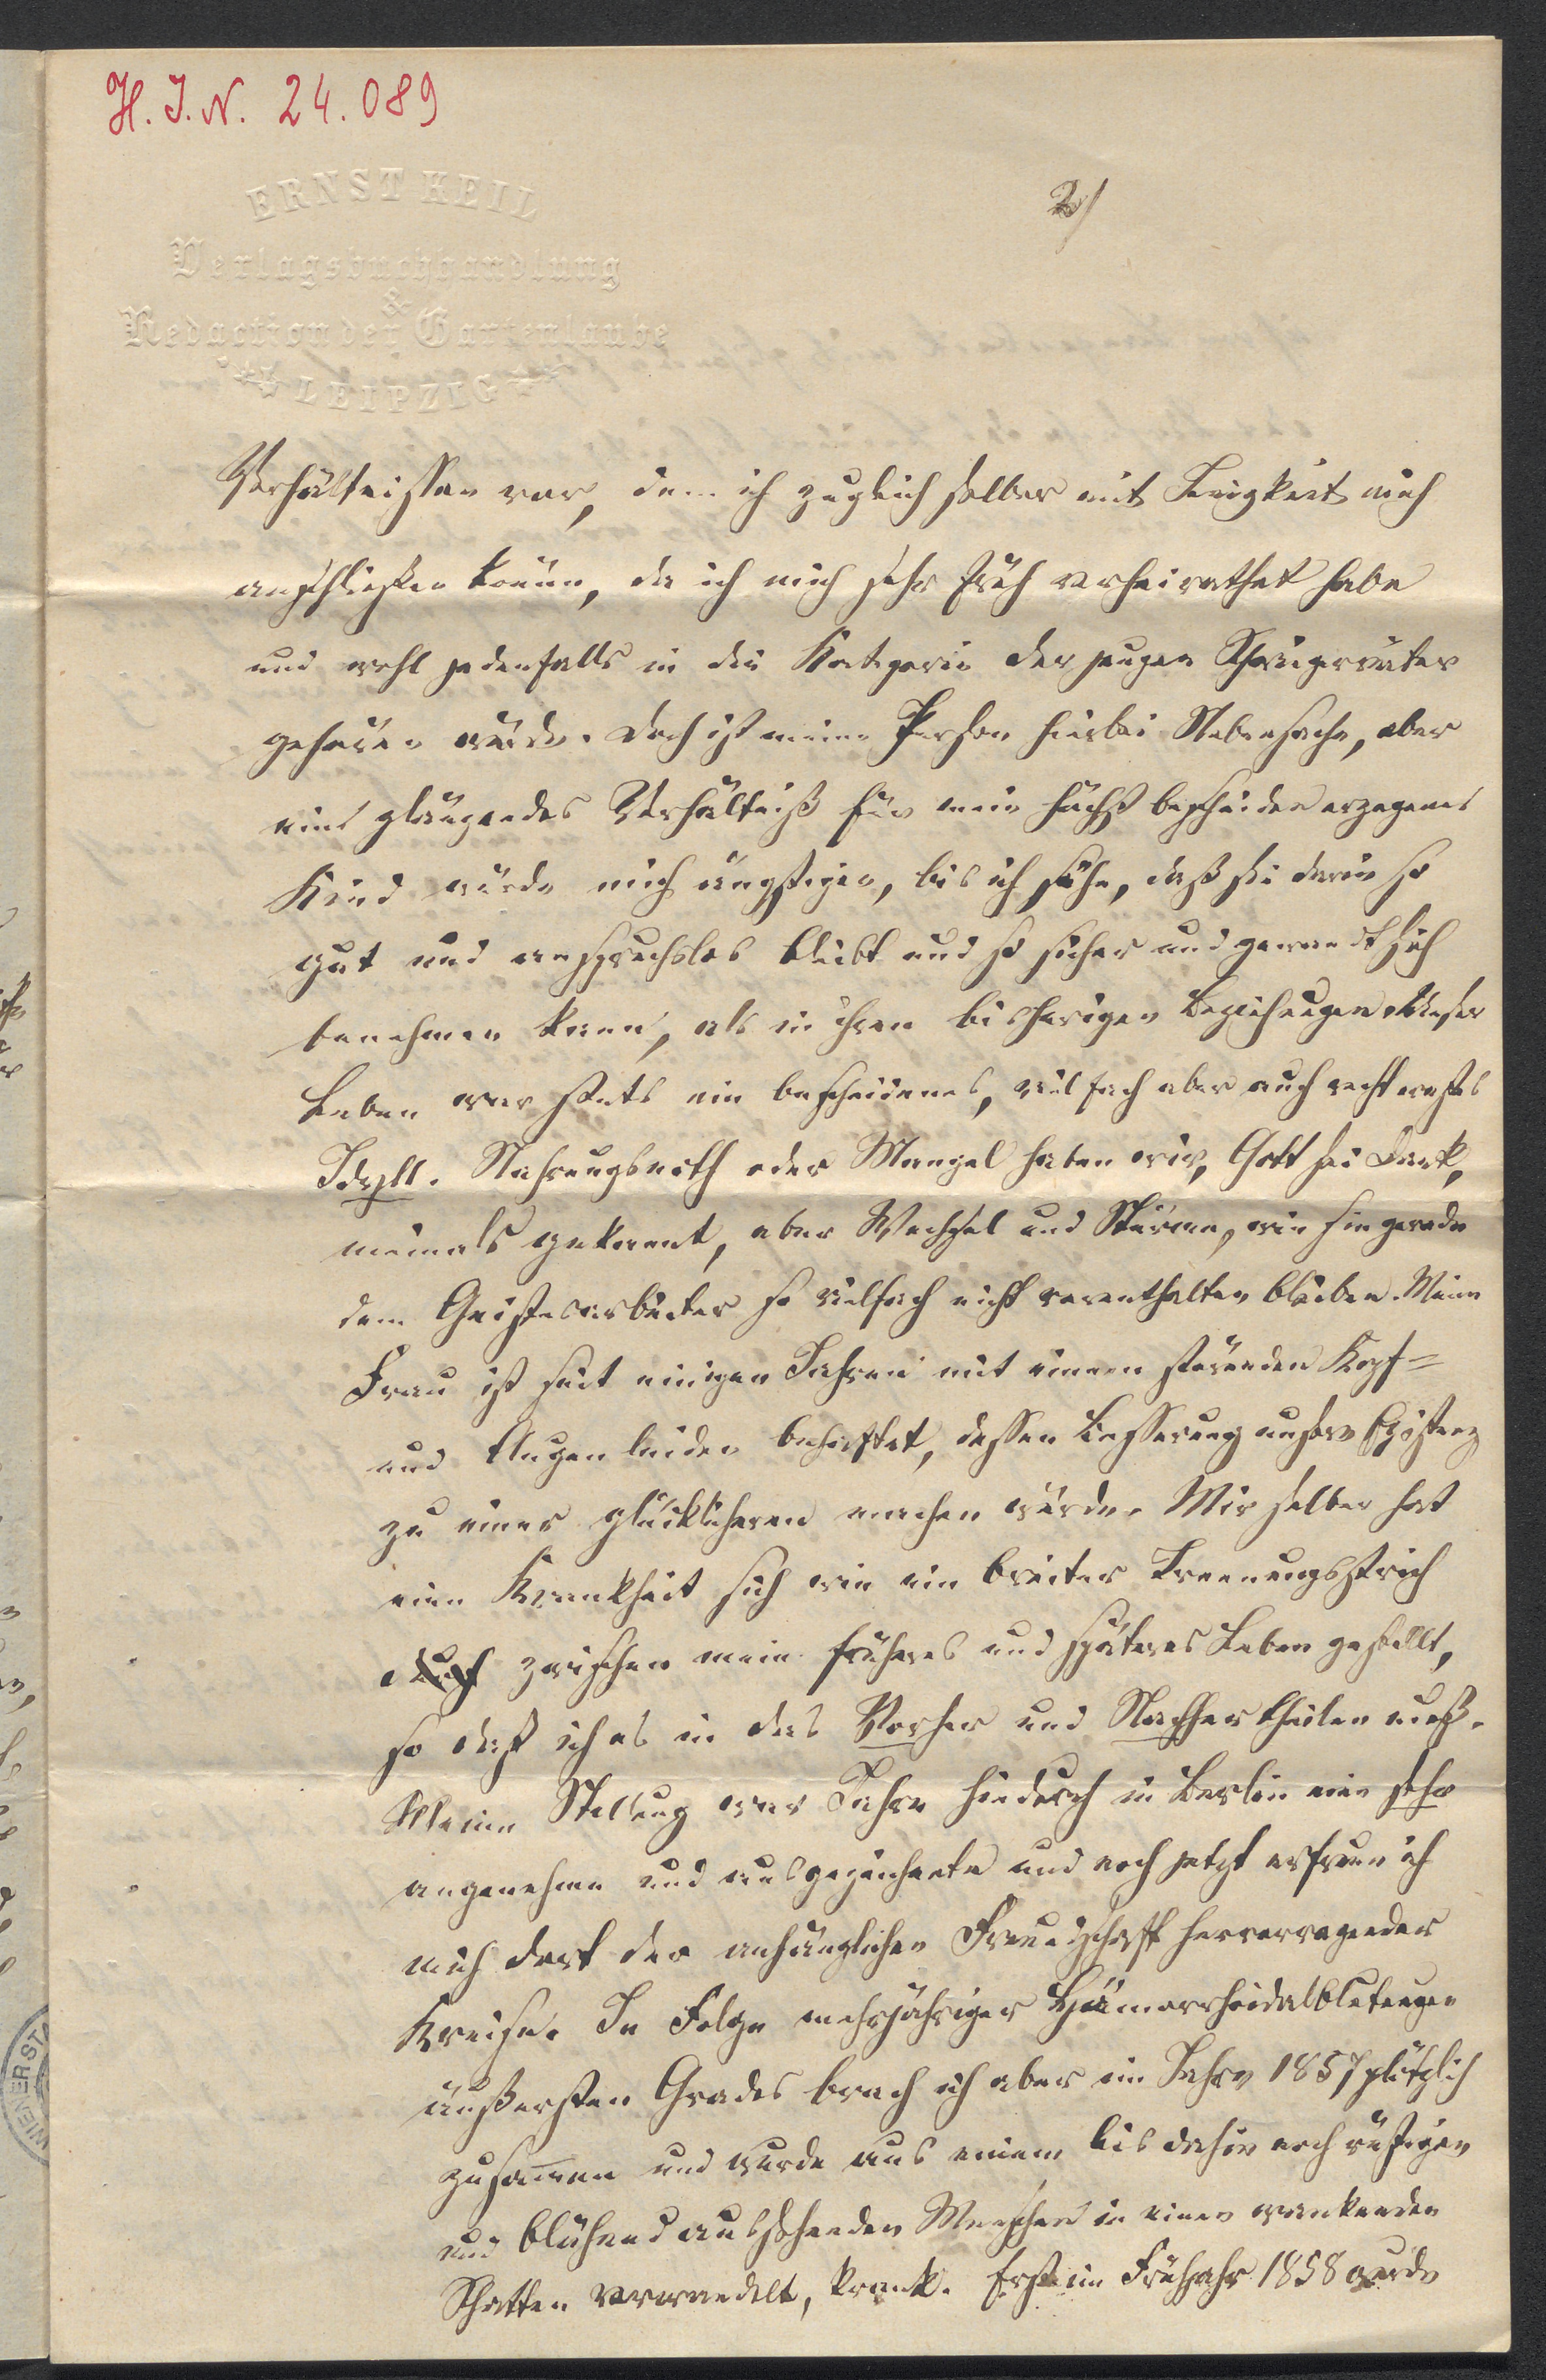 H. I. N. 24.089
2/
ERNST KEIL
Verlagsbuchhandlung
&
Redaction der Gartenlaube
LEIPZIG
Verhältnissen vor, dem ich zugleich selber mit Leichtigkeit mich
anschließen könne, da ich mich sehr früh verheirathet habe
und wohl jedenfalls in die Kategorie der jungen Schwiegerväter
gehören würde. Doch ist meine Person hierbei Nebensache, aber
ein glänzendes Verhältniß für mein höchst bescheiden erzogenes
Kind würde mich ängstigen, bis ich sähe, daß sie darin so
gut und anspruchslos bleibt und so sicher und gewandt sich
benehmen kann, als in ihren bisherigen Beziehungen. Unser
Leben war stets ein bescheidenes, vielfach aber auch recht ernstes
Idyll. Nahrungsnoth oder Mangel haben wir, Gott sei Dank,
niemals gekannt, aber Wechsel und Stürme, wie sie gerade
dem Geistesarbeiter so vielfach nicht vorenthalten bleiben. Meine
Frau ist seit einigen Jahren mit einem störenden Kopf=
und Augenleiden behaftet, dessen Besserung unsere Existenz
zu einer glücklicheren machen würde. Mir selber hat
eine Krankheit sich wie ein breiter Trennungsstrich
zwischen mein früheres und späteres Leben gestellt,
so daß ich es in das Vorher und Nachher theilen muß.
Meine Stellung war Jahre hindurch in Berlin eine sehr
angenehme und ausgezeichnete und noch jetzt erfreue ich
mich dort der anhänglichen Freundschaft hervorragender
Kreise. In Folge mehrjähriger Hämorrhoidalblutungen
äußersten Grades brach ich aber im Jahre 1857 plötzlich
zusammen und wurde aus einem bis dahin noch rüstigen
und blühend aussehenden Menschen in einen wankenden
Schatten verwandelt, krank. Erst im Frühjahr 1858 wurde
WIENER STA